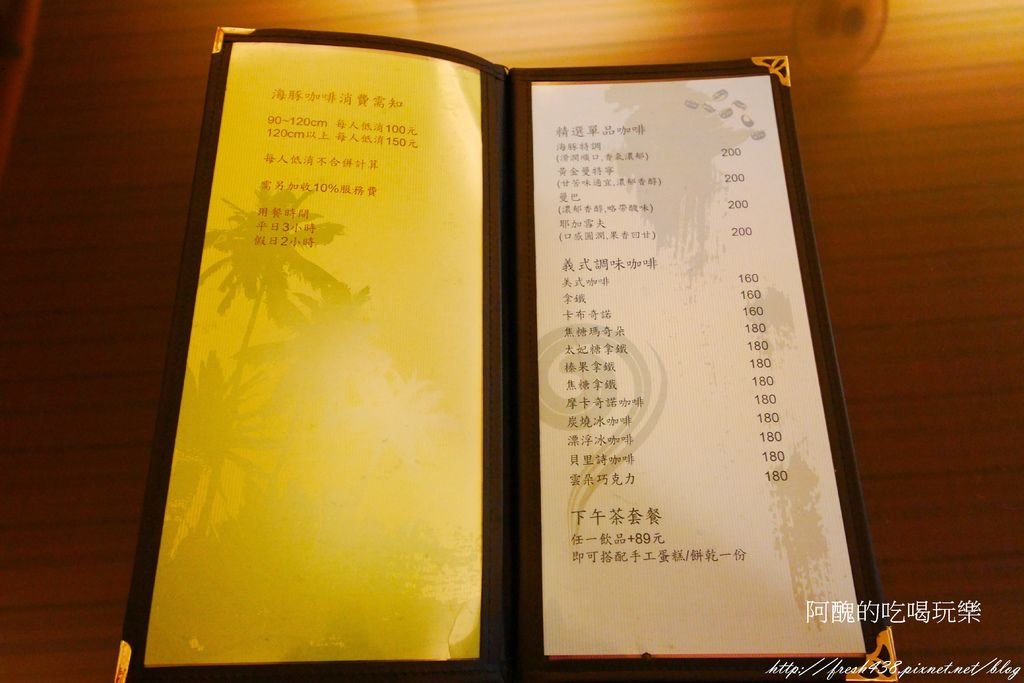 海豚咖啡消費需知
90~120cm 每人低消100元
120cm以上 每人低消150元
每人低消不合併計算
需另加收10%服務費
用餐時間
平日3小時
假日2小時
精選單品咖啡
海豚特調 200
(滑潤順口,香氣濃郁)
黃金曼特寧 200
(甘苦味適宜,濃郁香醇)
曼巴 200
(濃郁香醇,略帶酸味)
耶加雪夫 200
(口感圓潤,果香回甘)
義式調味咖啡
美式咖啡 160
拿鐵 160
卡布奇諾 160
焦糖瑪奇朵 180
太妃糖拿鐵 180
榛果拿鐵 180
焦糖拿鐵 180
摩卡奇諾咖啡 180
炭燒冰咖啡 180
漂浮冰咖啡 180
貝里詩咖啡 180
雲朵巧克力 180
下午茶套餐
任一飲品+89元
即可搭配手工蛋糕/餅乾一份
阿醜的吃喝玩樂
http://fresh438.pixnet.net/blog